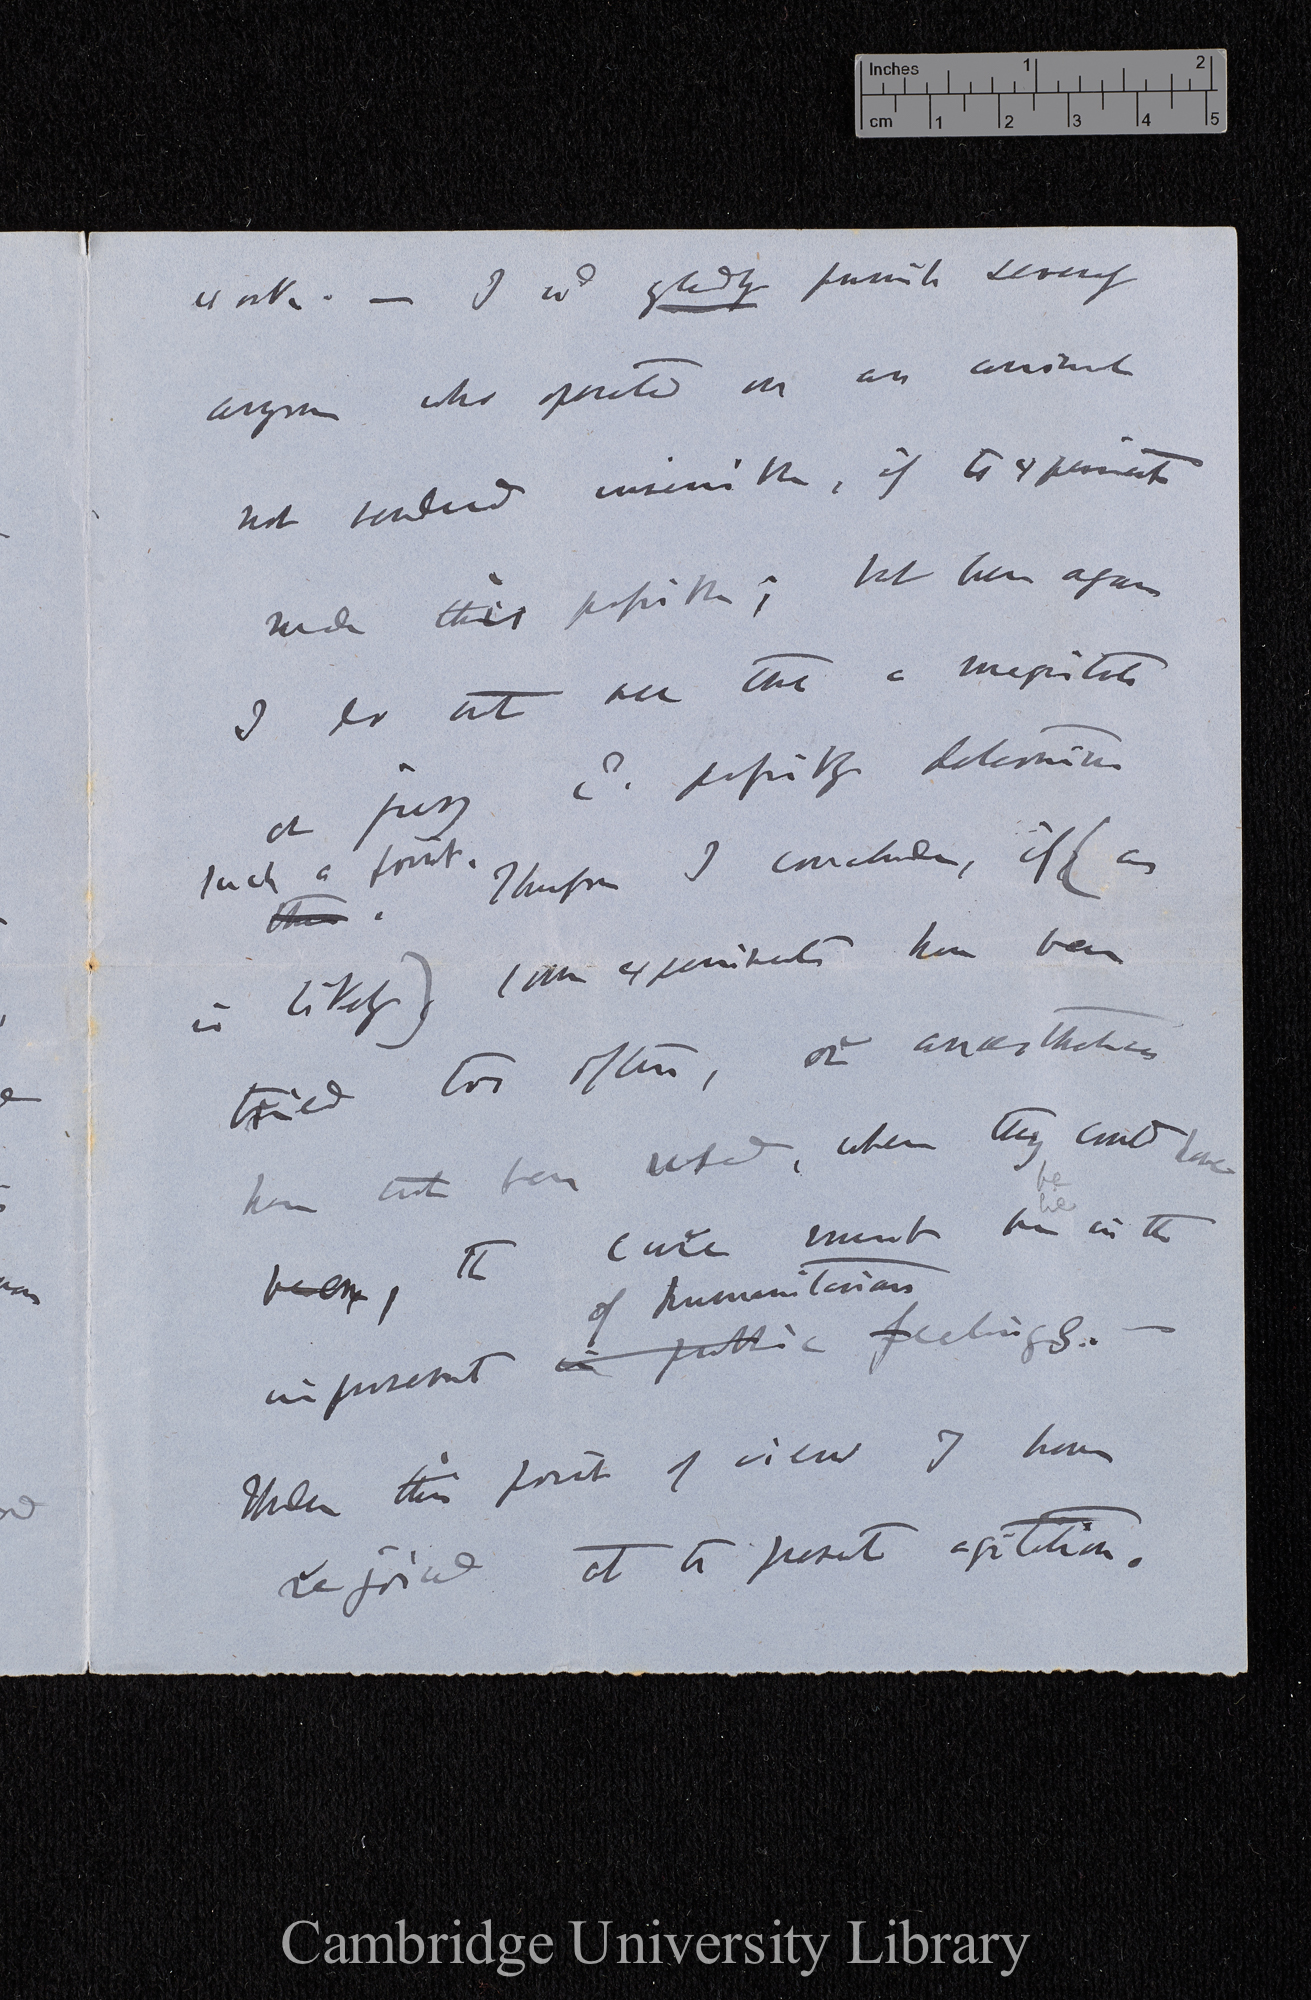 Inches 1 2
cm 1 2 3 4 5
work. — I wd gladly punish severely
anyone who operated on an animal
not rendered insensible, if the experiment
made this possible; but here again
I do not see that a magistrate
or jury cd. possibly determine
such a point.
this. Therefore I conclude, if (as
is likely) some experiments have been
tried too often, or anæsthetics
have not been used, when they could have
be
be
been, the cure must be in the
of humanitarian
improvement in public feelings. —
Under this point of view I have
rejoiced at the present agitation.
Cambridge University Library